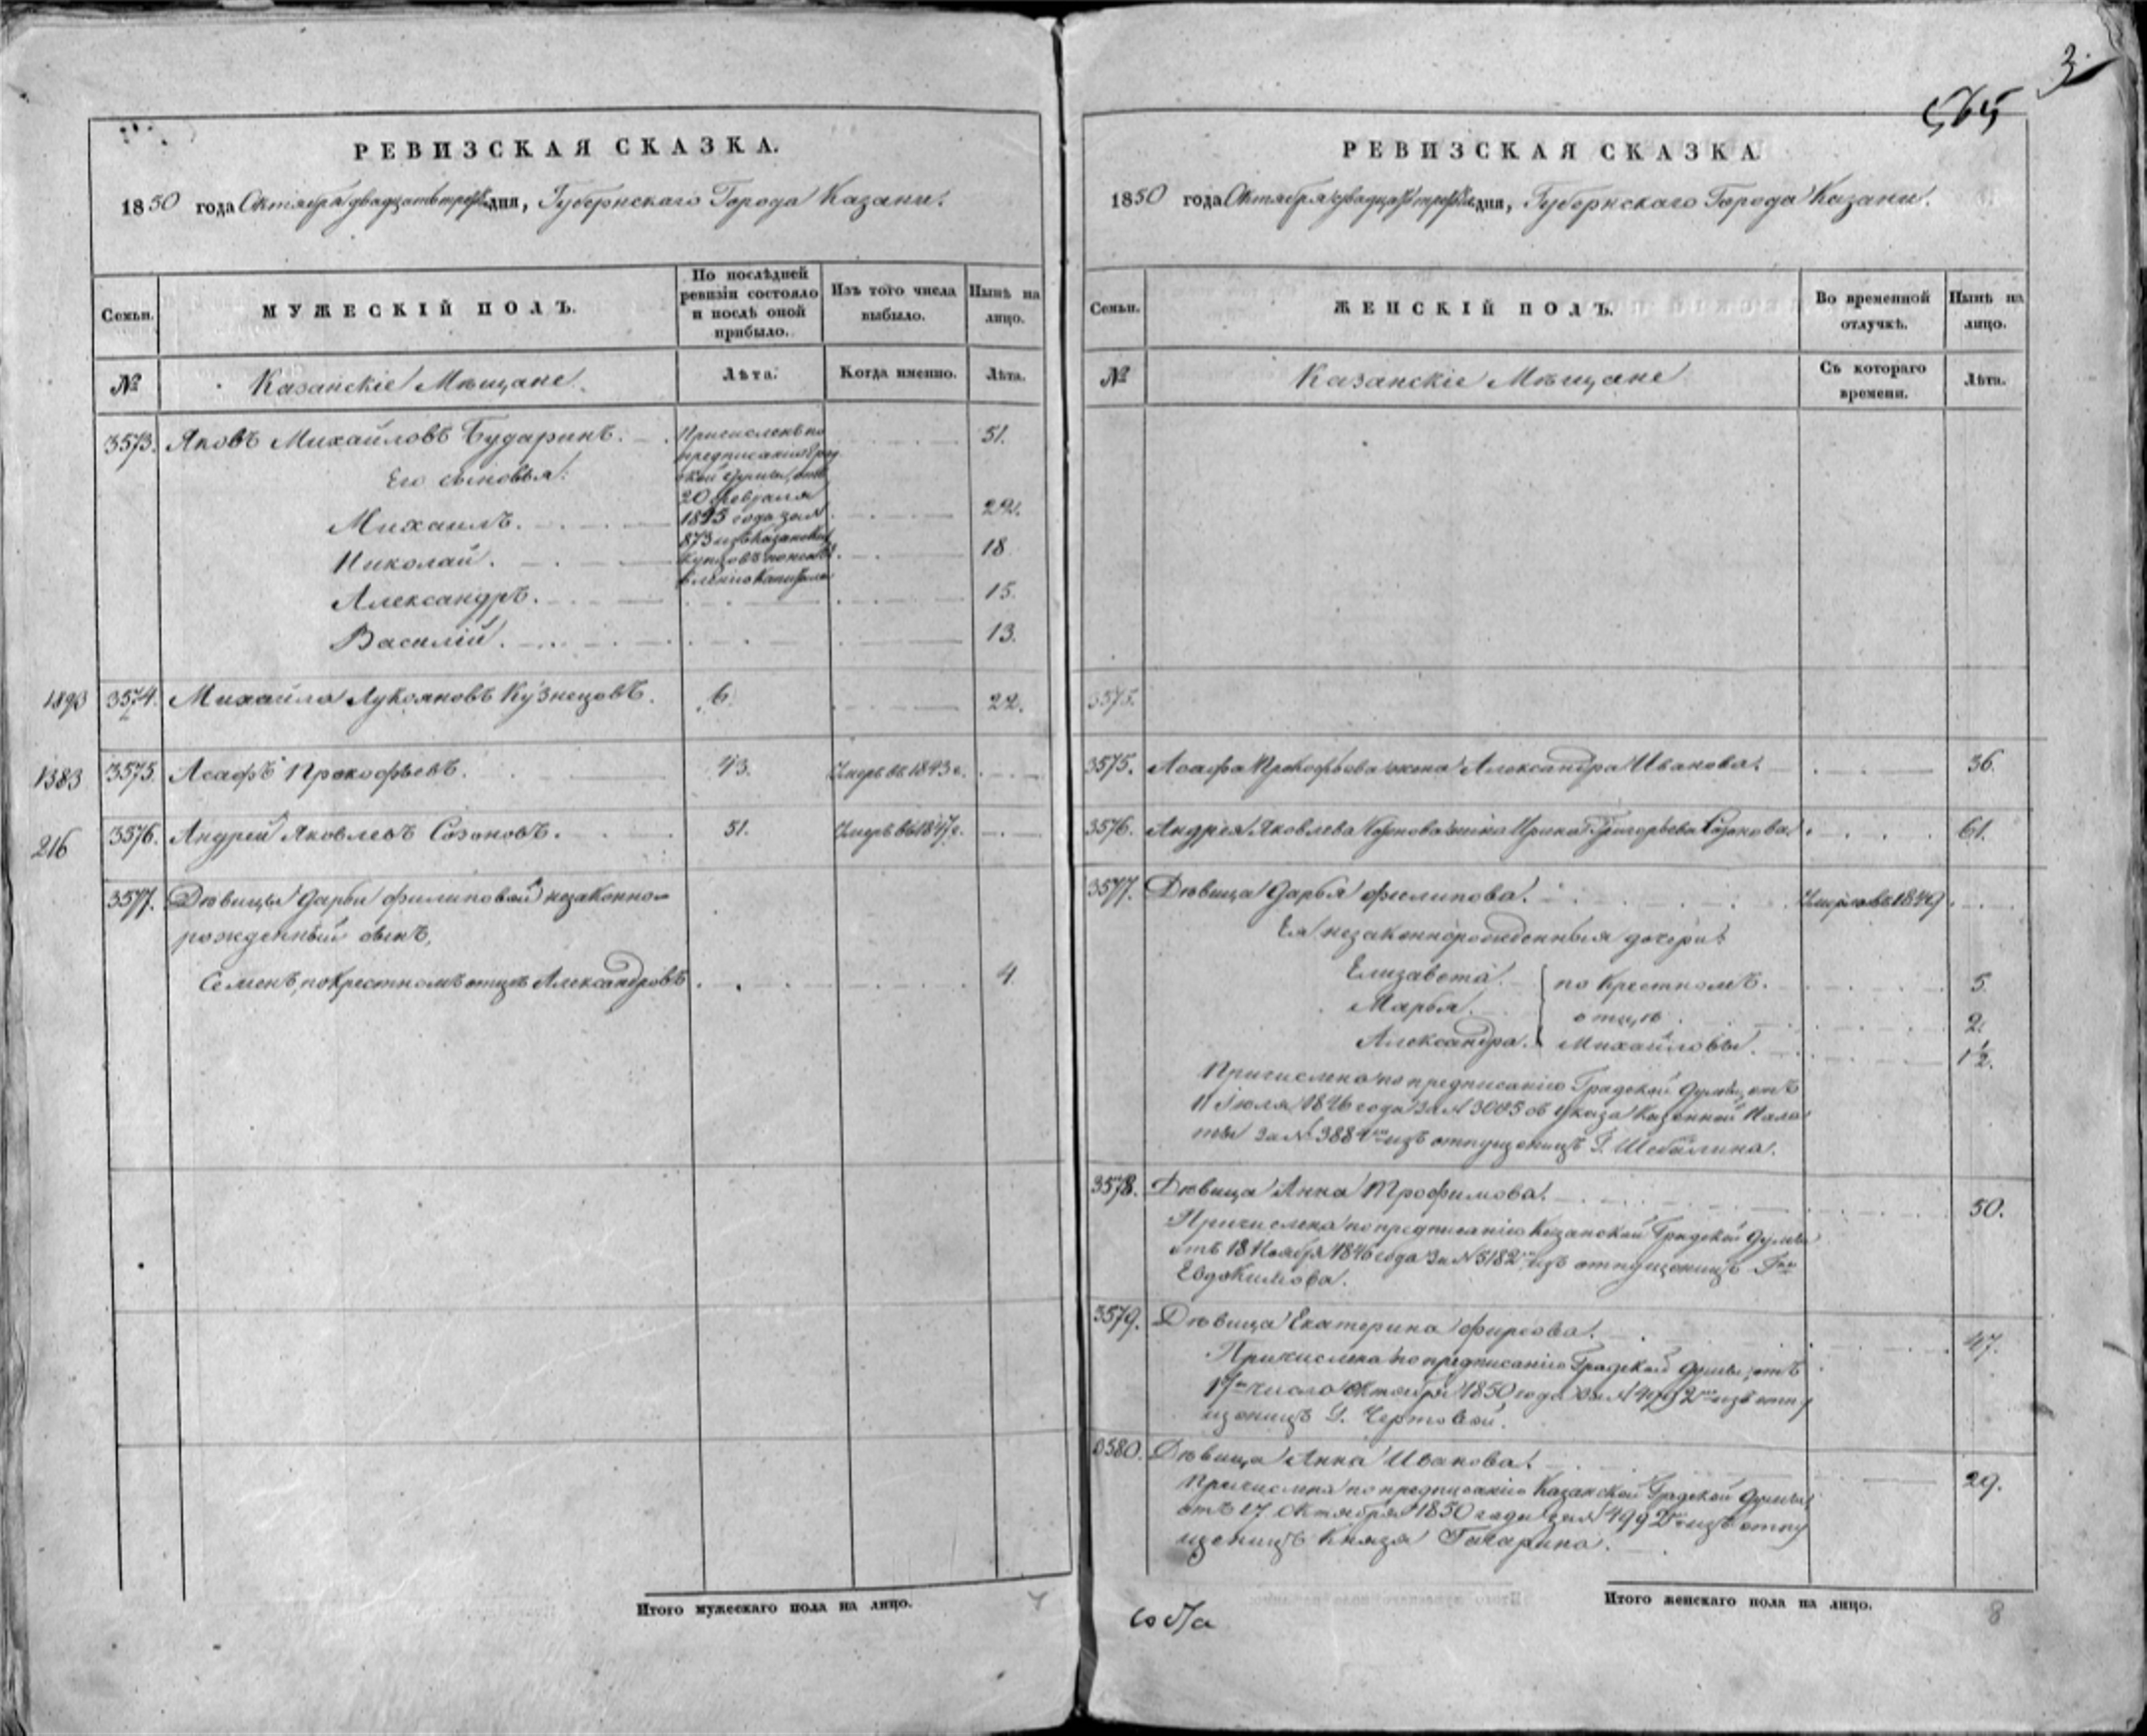 РЕВИЗСКАЯ СКАЗКА.
1850 года Октября двадцать третьяго дня, Губернскаго Города Казани.
Семьи.
МУЖЕСКІЙ ПОЛЪ.
По послѣдней ревизіи состояло и послѣ оной прибыло.
Изъ того числа выбыло.
Нынѣ на лицо.
№
Казанскіе Мѣщане
Лѣта.
Когда именно.
Лѣта.
3573. Яковъ Михайловъ Бударинъ. 51.
Причисленъ по
предписанію Град
ской Думы, отъ
20 Февраля
1845 года за №
873 изъ Казанскихъ
Купцовъ по необъ
явленію Капитала
Его сыновья:
Михаилъ. 22.
Николай. 18
Александръ. 15.
Василій. 13.
1890 3574. Михайло Лукояновъ Кузнецовъ. 6. 22.
1383 3575. Асафъ Прокофьевъ. 43. Умеръ въ 1843 г.
216 3576. Андрей Яковлевъ Сазоновъ. 51. Умеръ въ 1847 г.
3577. Дѣвицы Дарьи Филиповой незаконно-
рожденный сынъ,
Семенъ, по крестномъ отцѣ Александровъ 4.
Итого мужескаго пола на лицо. 7
3.
565
РЕВИЗСКАЯ СКАЗКА
1850 года Октября двадцать третьяго дня, Губернскаго Города Казани.
Семьи.
ЖЕНСКІЙ ПОЛЪ.
Во временной отлучкѣ.
Нынѣ на лицо.
№
Казанскіе Мѣщане
Съ котораго времени.
Лѣта.
3575.
3575. Асафа Прокофьева жена Александра Иванова. 36.
3576. Андрея Яковлева Сазонова жена Ирина Григорьева Сазонова. 61.
3577. Дѣвица Дарья Филипова. Умерла въ 1849
Ея незаконнорожденныя дочери:
Елизавета. по крестномъ. 5.
Марья. отцѣ. 2.
Александра. Михайловы. 1½.
Причислена по предписанію Градской Думы, отъ
11 Іюля 1846 года за № 3085 съ указа Казенной Пала
ты за № 3884 изъ отпущеницъ Г. Шебалина.
3578. Дѣвица Анна Трофимова. 50.
Причислена по предписанію Казанской Градской Думы
отъ 18 Ноября 1846 года за № 5182 изъ отпущеницъ Г-на
Евдокимова.
3579. Дѣвица Екатерина Фирсова. 47.
Причислена по предписанію Градской Думы, отъ
17 число Октября 1850 года за № 4992 изъ отпу
щеницъ Г. Чертовой.
3580. Дѣвица Анна Иванова. 29.
Причислена по предписанію Казанской Градской Думы,
отъ 17 Октября 1850 года за № 4992 изъ отпу
щеницъ Князя Гагарина.
Итого женскаго пола на лицо. 8